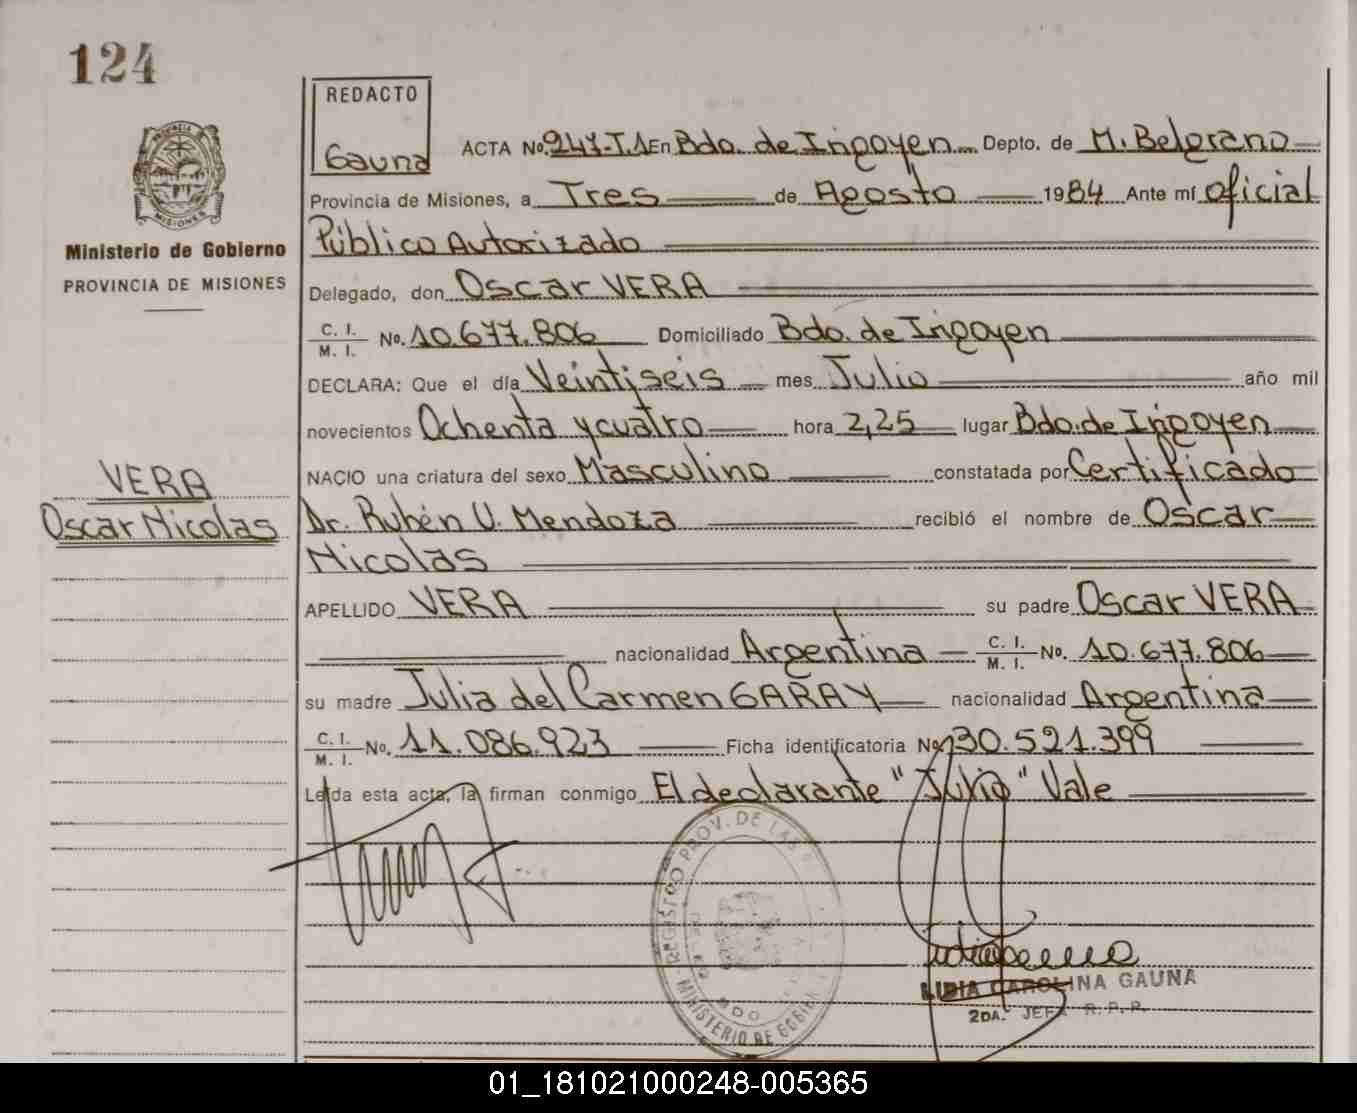 124
REDACTO
Gauna
ACTA No. 247-T.1 En Bdo. de Irigoyen Depto. de M. Belgrano
Provincia de Misiones, a Tres de Agosto 1984 Ante mí Oficial
Público Autorizado
Ministerio de Gobierno
PROVINCIA DE MISIONES
Delegado, don Oscar VERA
C. I.
M. I. No. 10.677.806 Domiciliado Bdo. de Irigoyen
DECLARA: Que el día Veintiseis mes Julio año mil
novecientos Ochenta y cuatro hora 2,25 lugar Bdo. de Irigoyen
NACIO una criatura del sexo Masculino constatada por Certificado
VERA
Oscar Nicolas
Dr. Rubén U. Mendoza recibió el nombre de Oscar
Nicolas
APELLIDO VERA su padre Oscar VERA
nacionalidad Argentina C. I.
M. I. No. 10.677.806
su madre Julia del Carmen GARAY nacionalidad Argentina
C. I.
M. I. No. 11.086.923 Ficha identificatoria No 30.521.399
Leída esta acta, la firman conmigo El declarante "Julio" Vale
REGISTRO PROV. DE LAS
MINISTERIO DE GOBI
LIDIA CAROLINA GAUNA
2DA. JEFA R. P. P.
01_181021000248-005365